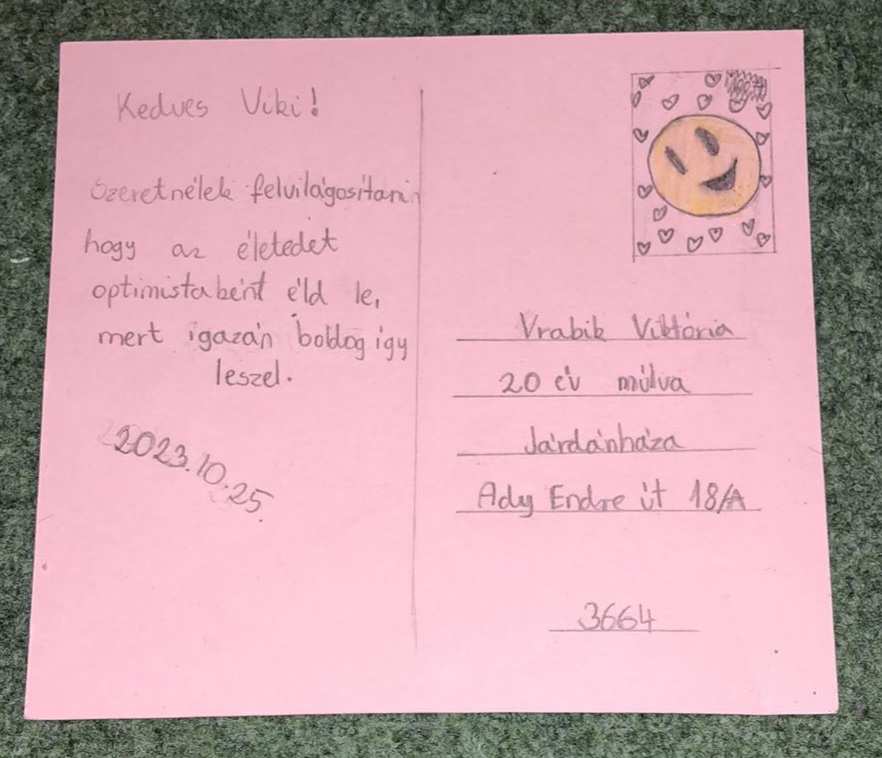 Kedves Viki!
Szeretnélek felvilágosítani
hogy az életedet
optimistabént éld le,
mert igazán boldog így
leszel.
2023.10.25.
Vrabik Viktória
20 év múlva
Járdánháza
Ady Endre út 18/A
3664